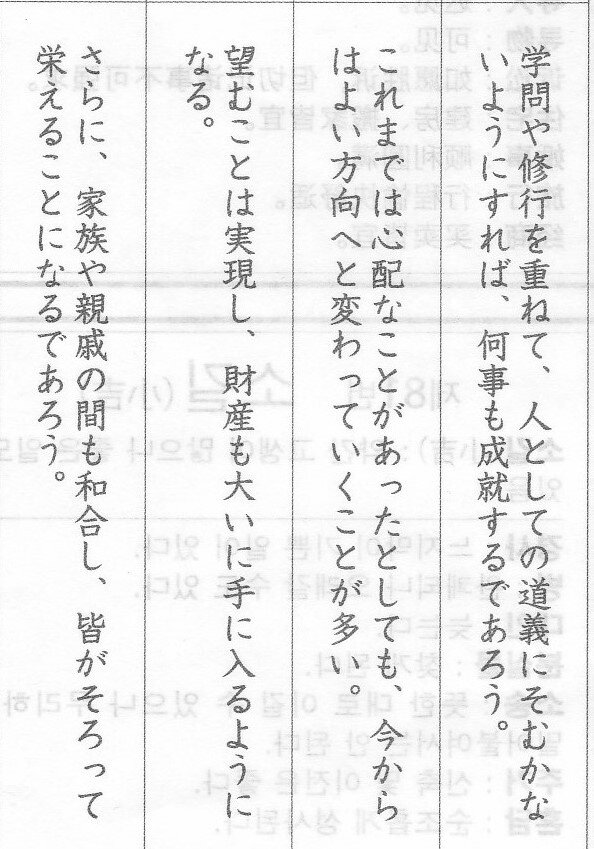 学問や修行を重ねて、人としての道義にそむかな
いようにすれば、何事も成就するであろう。
これまでは心配なことがあったとしても、今から
はよい方向へと変わっていくことが多い。
望むことは実現し、財産も大いに手に入るように
なる。
さらに、家族や親戚の間も和合し、皆がそろって
栄えることになるであろう。